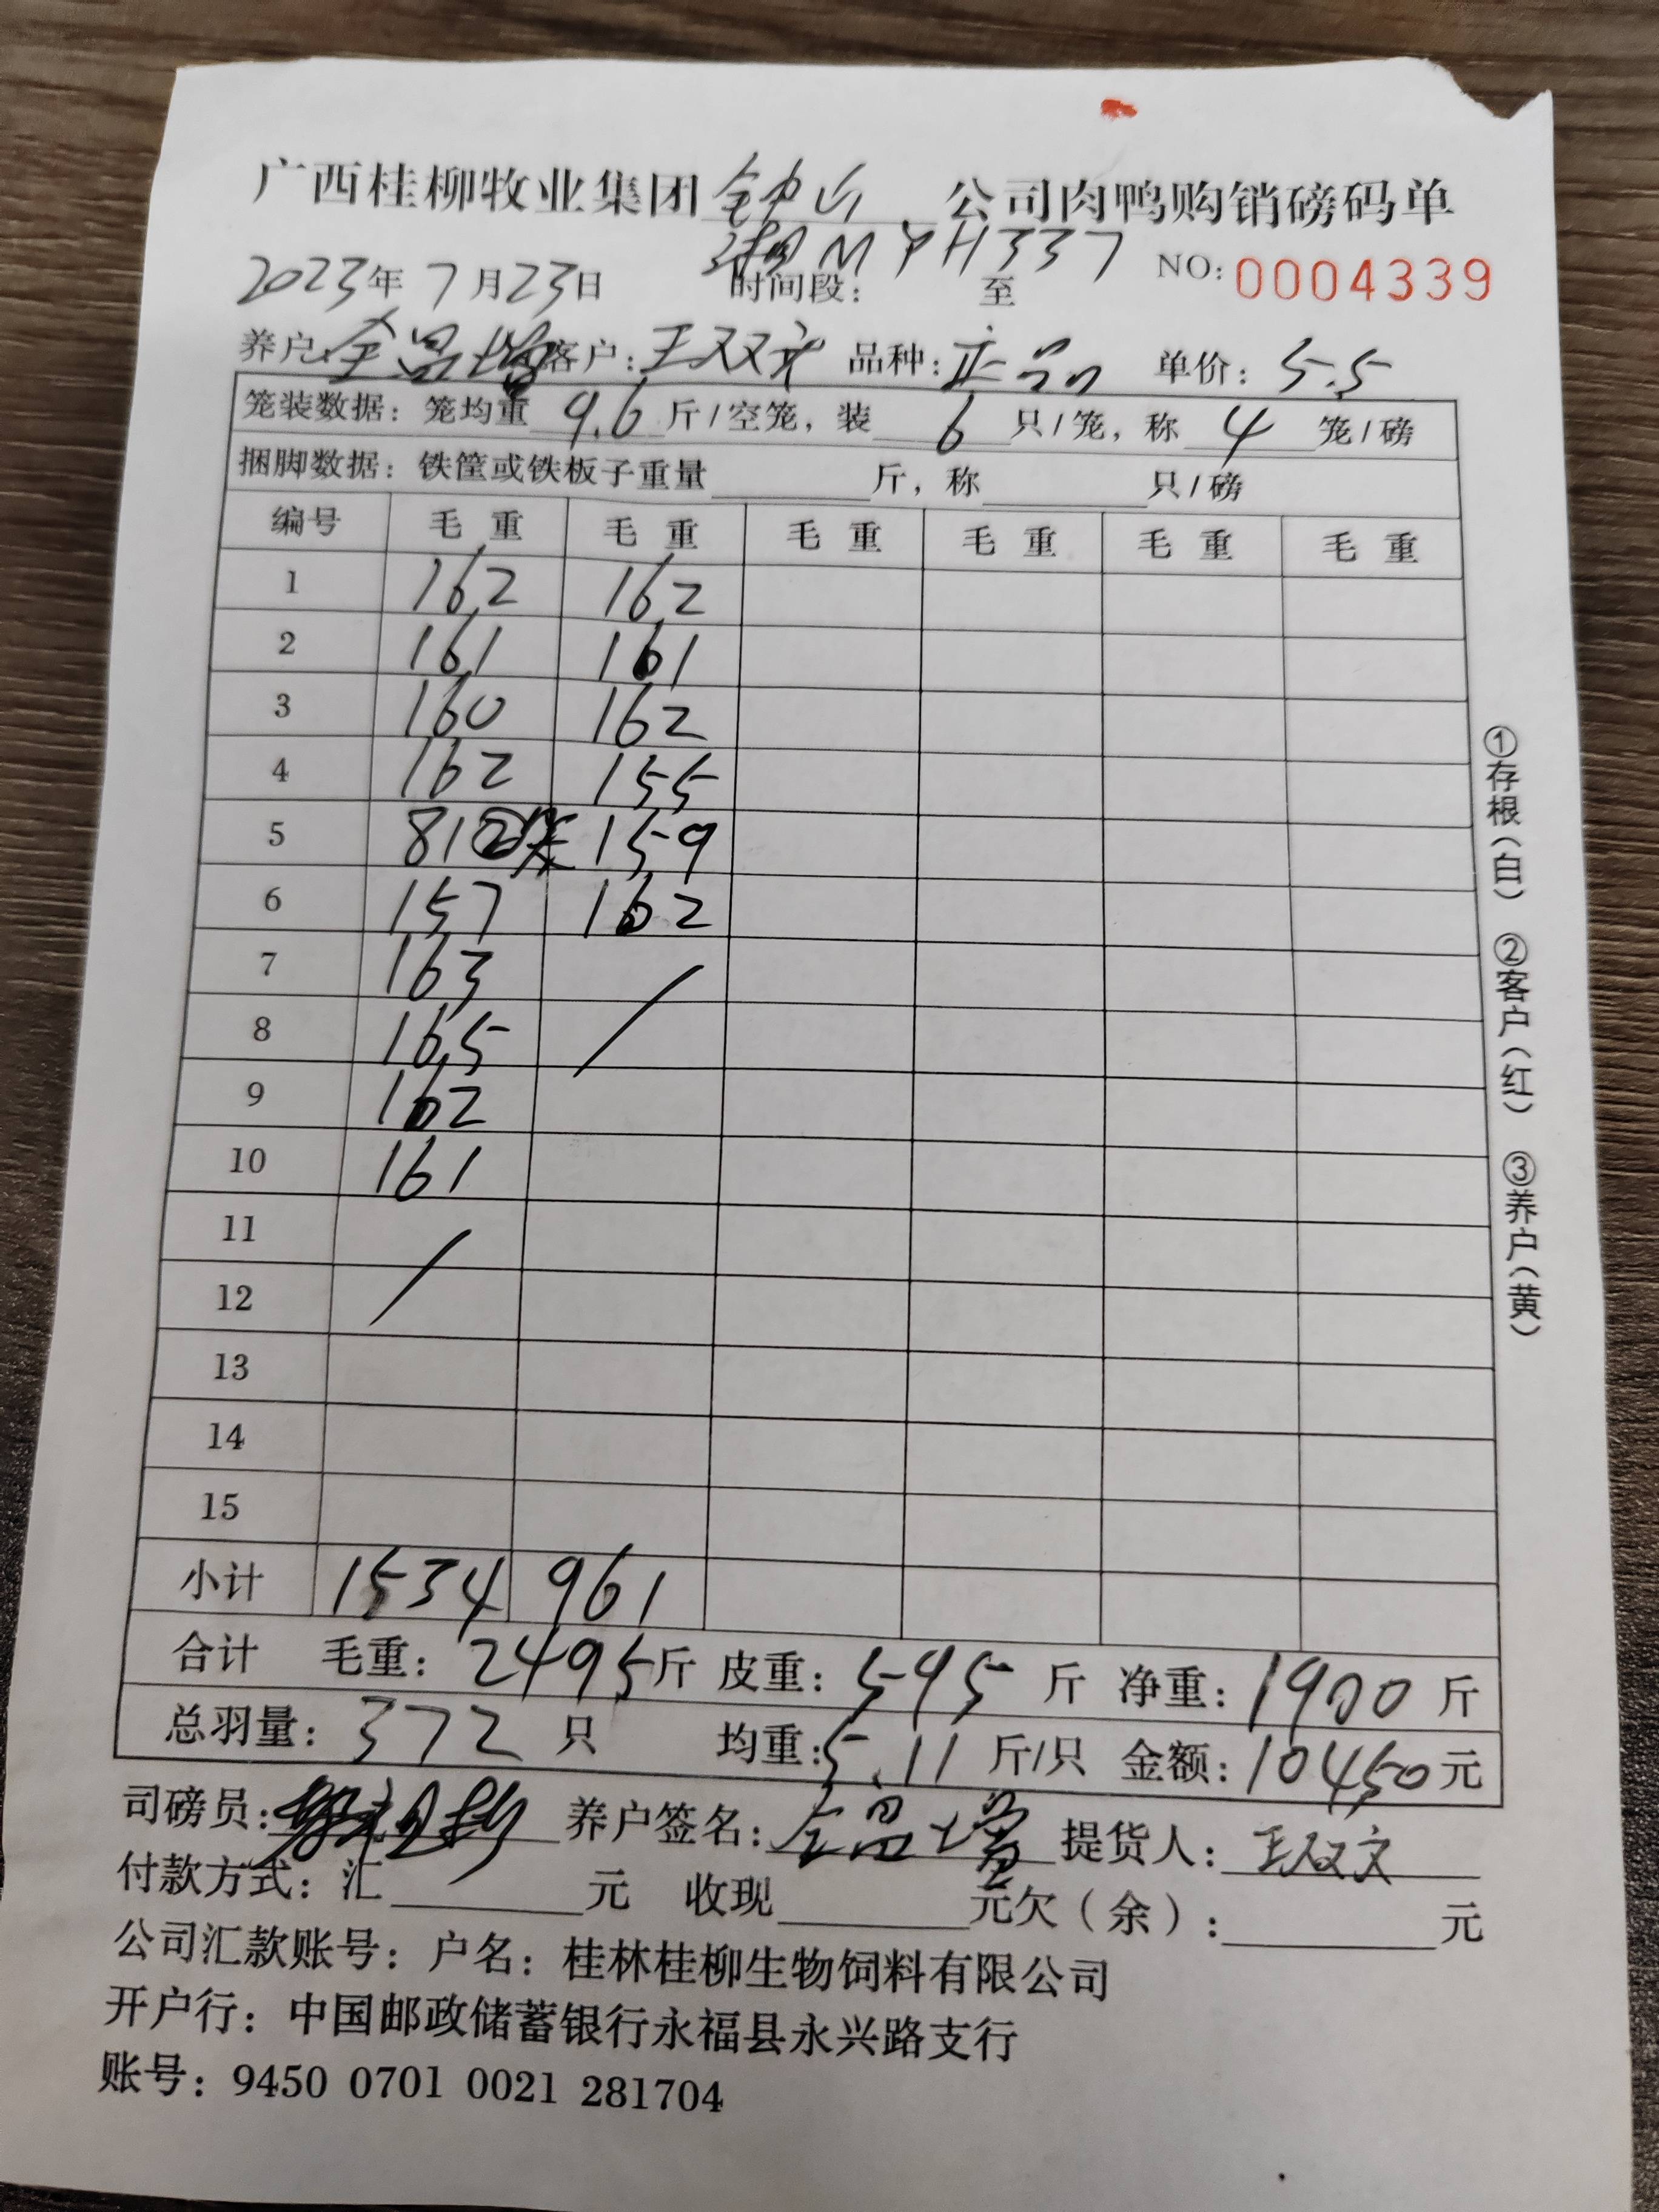 广西桂柳牧业集团钟山公司肉鸭购销磅码单
湘MYH337
2023年7月23日 时间段: 至 NO:0004339
养户:全昌增 客户:王双文 品种:正品 单价:5.5
笼装数据:笼均重9.6斤/空笼,装6只/笼,称4笼/磅
捆脚数据:铁筐或铁板子重量 斤,称 只/磅
编号 毛重 毛重 毛重 毛重 毛重 毛重
1 162 162
2 161 161
3 160 162
4 162 155
5 81②笼 159
6 157 162
7 163 /
8 165
9 162
10 161
11 /
12
13
14
15
小计 1534 961
合计 毛重:2495斤 皮重:595斤 净重:1900斤
总羽量:372只 均重:5.11斤/只 金额:10450元
司磅员: 养户签名:全昌增 提货人:王双文
付款方式:汇 元 收现 元欠(余): 元
公司汇款账号:户名:桂林桂柳生物饲料有限公司
开户行:中国邮政储蓄银行永福县永兴路支行
账号:9450 0701 0021 281704
①存根(白) ②客户(红) ③养户(黄)